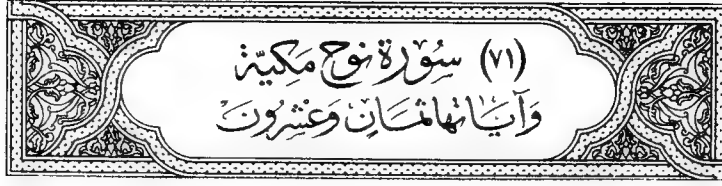 (٧١) سُورَة نوح مَكيّة
وَآيَاتها ثمَانِ وَعشرُونَ